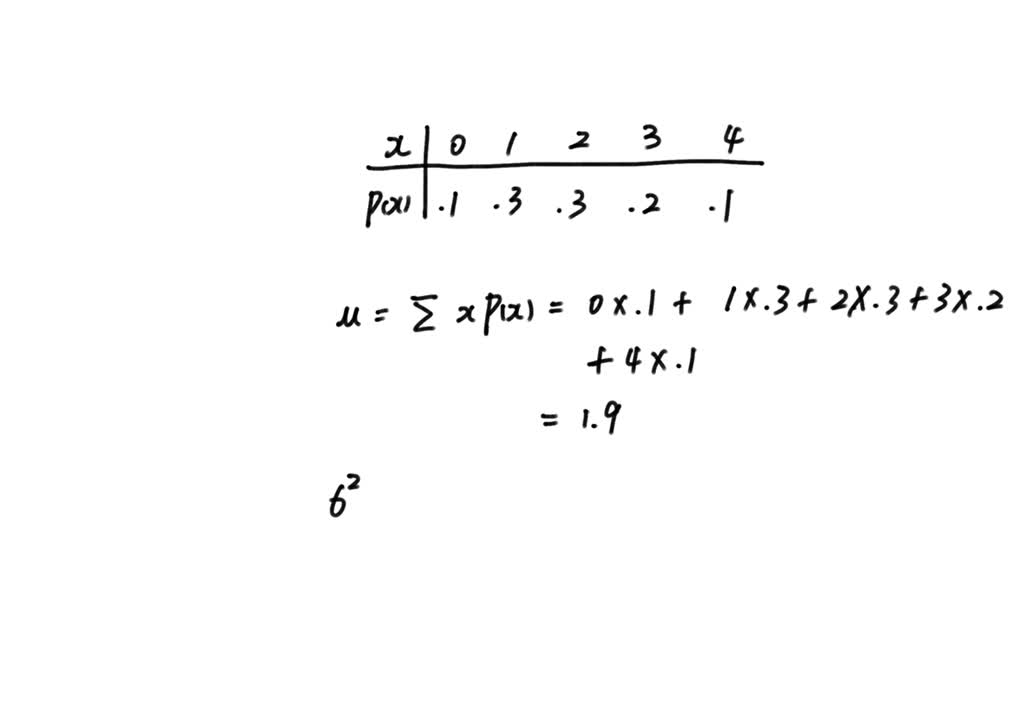 x | 0 1 2 3 4
p(x) | .1 .3 .3 .2 .1
μ = Σ x p(x) = 0 x .1 + 1 x .3 + 2 x .3 + 3 x .2
+ 4 x .1
= 1.9
σ²